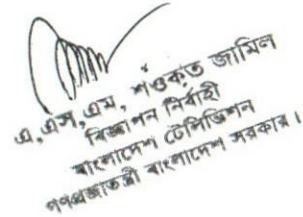 এ,এস,এম, শওকত জামিল
বিজ্ঞাপন নির্বাহী
বাংলাদেশ টেলিভিশন
গণপ্রজাতন্ত্রী বাংলাদেশ সরকার।